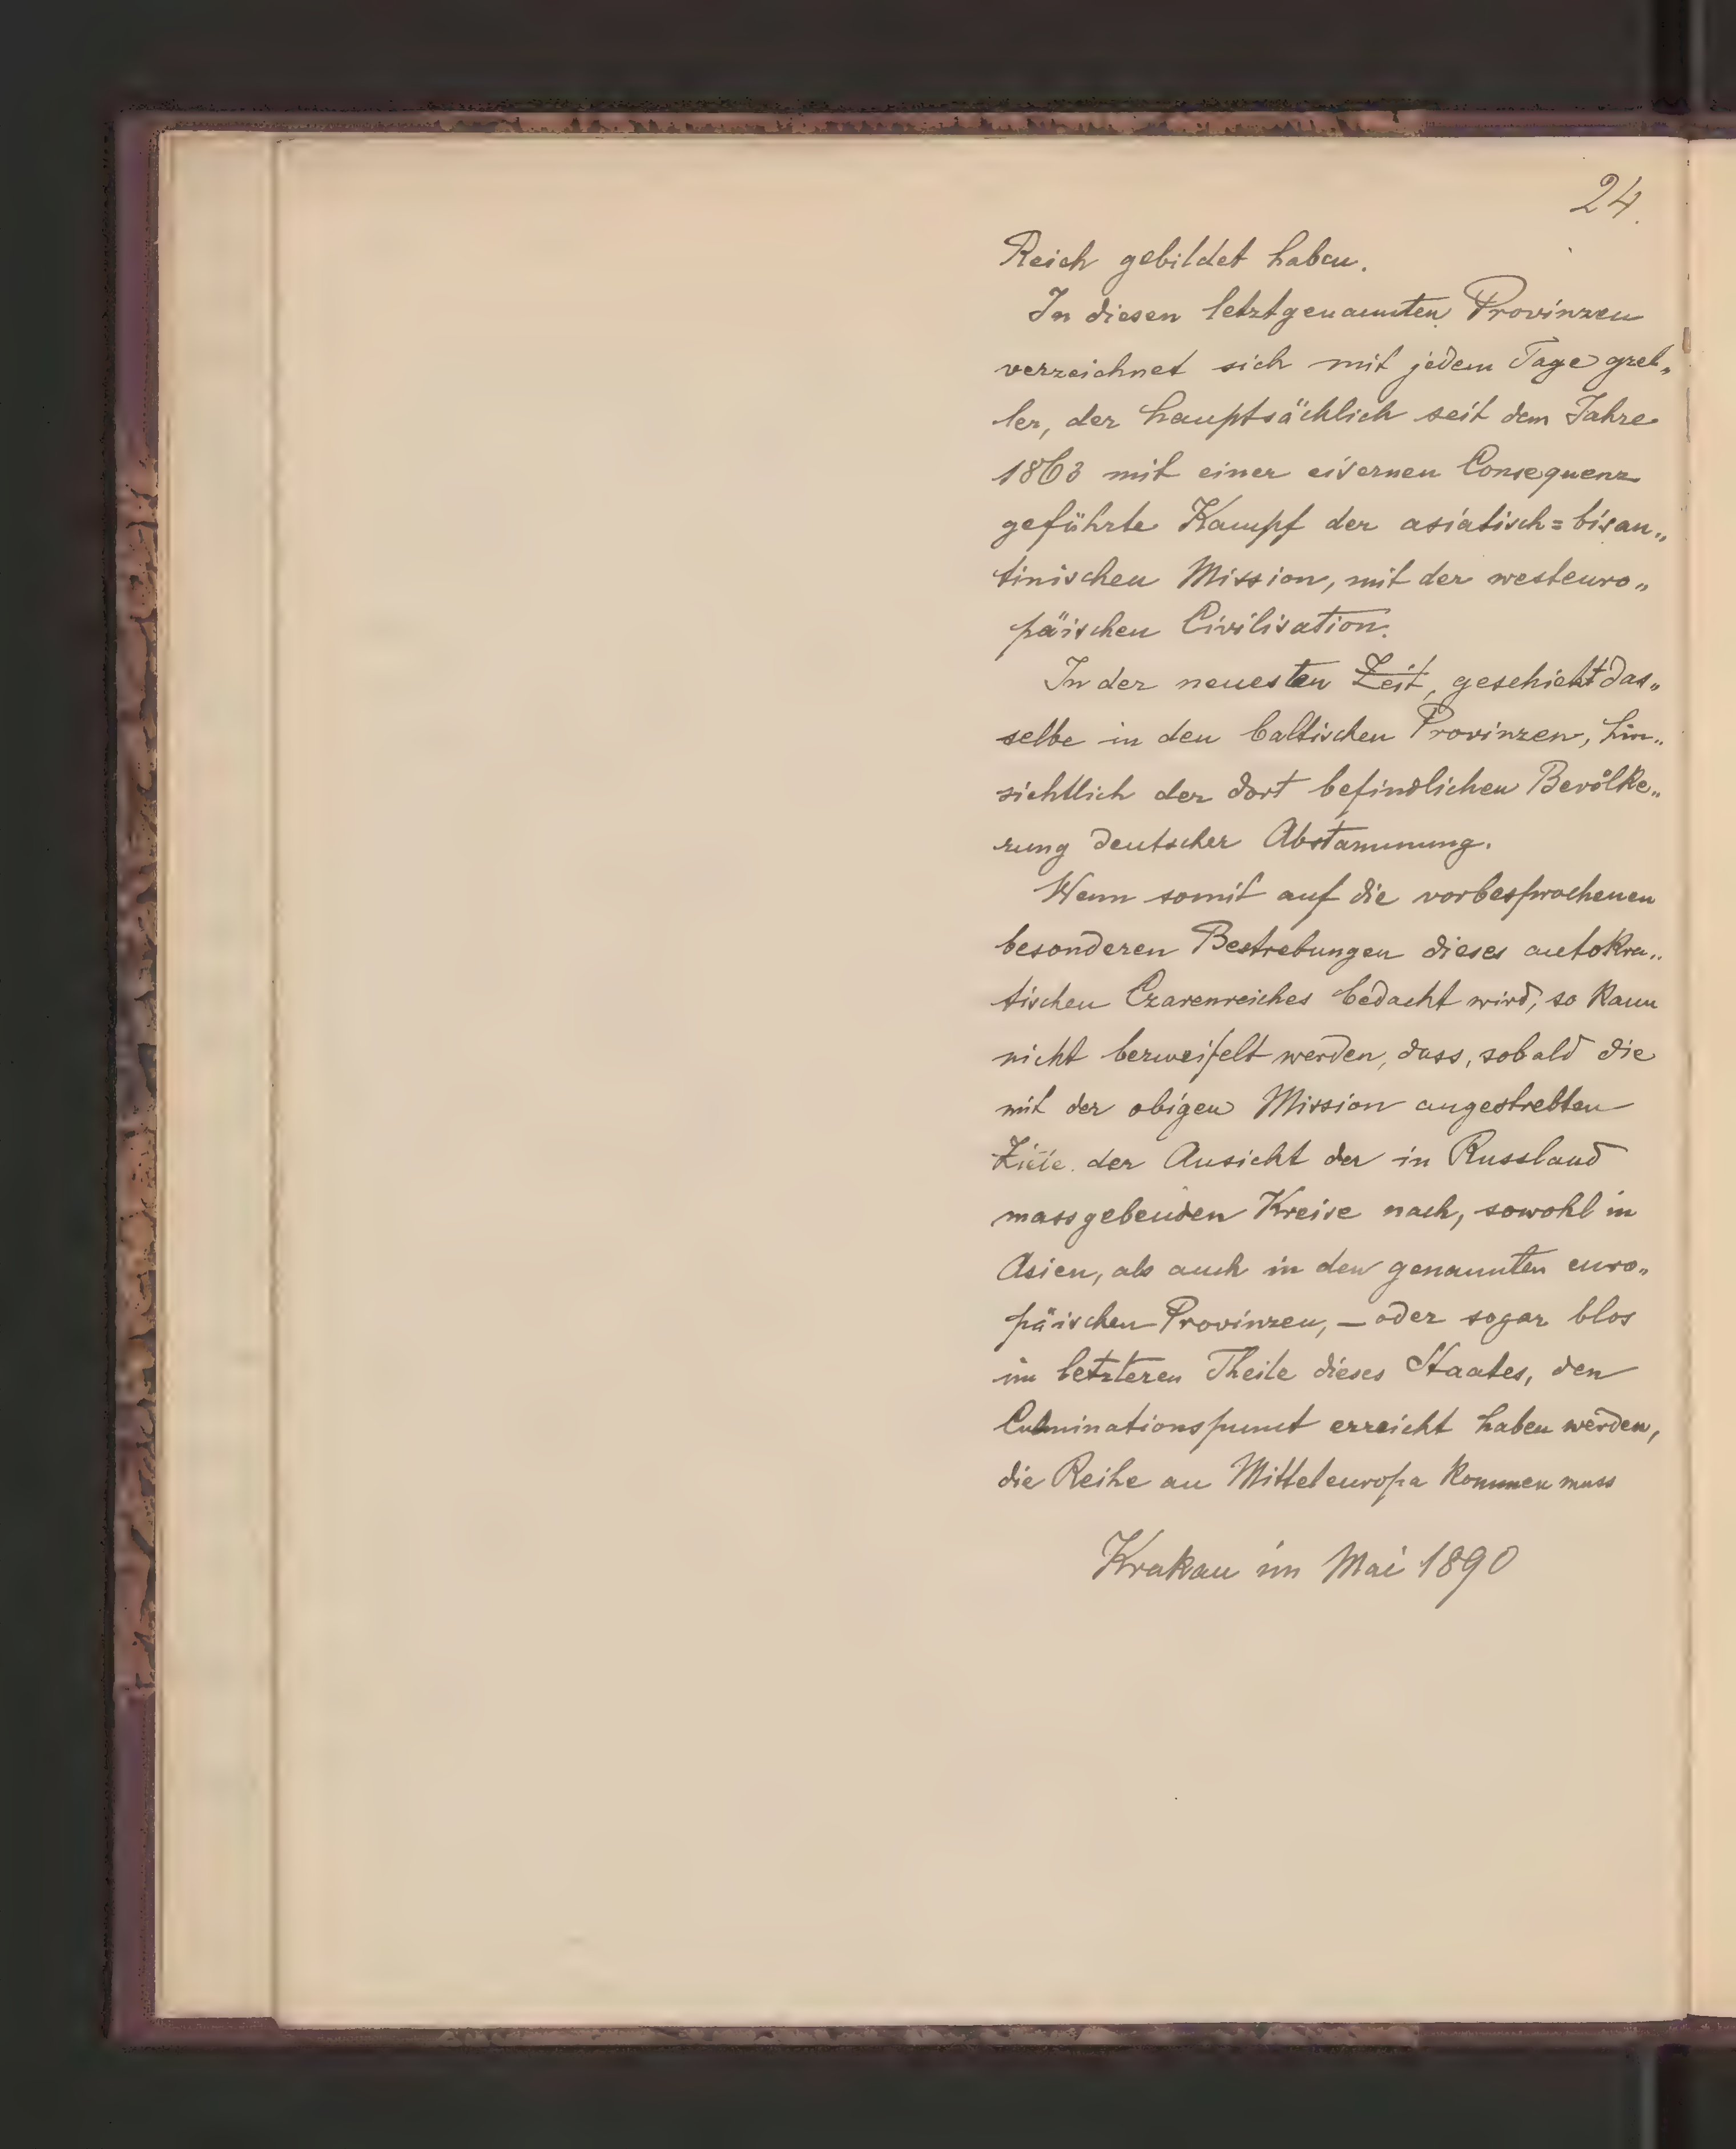 24.
Reich gebildet haben.
In diesen letztgenannten Provinzen
verzeichnet sich mit jedem Tage grel„
ler, der hauptsächlich seit dem Jahre
1863 mit einer eisernen Consequenz
geführte Kampf der asiatisch=bisan„
tinischen Mission, mit der westeuro„
päischen Civilisation.
In der neuesten Zeit, geschieht das„
selbe in den baltischen Provinzen, hin„
sichtlich der dort befindlichen Bevölke„
rung deutscher Abstammung.
Wenn somit auf die vorbesprochenen
besonderen Bestrebungen dieses autokra„
tischen Czarenreiches bedacht wird, so kann
nicht bezweifelt werden, dass, sobald die
mit der obigen Mission angestrebten
Ziele der Ansicht der in Russland
massgebenden Kreise nach, sowohl in
Asien, als auch in den genannten euro„
päischen Provinzen, — oder sogar blos
im letzteren Theile dieses Staates, den
Culminationspunct erreicht haben werden,
die Reihe an Mitteleuropa kommen muss
Krakau im Mai 1890